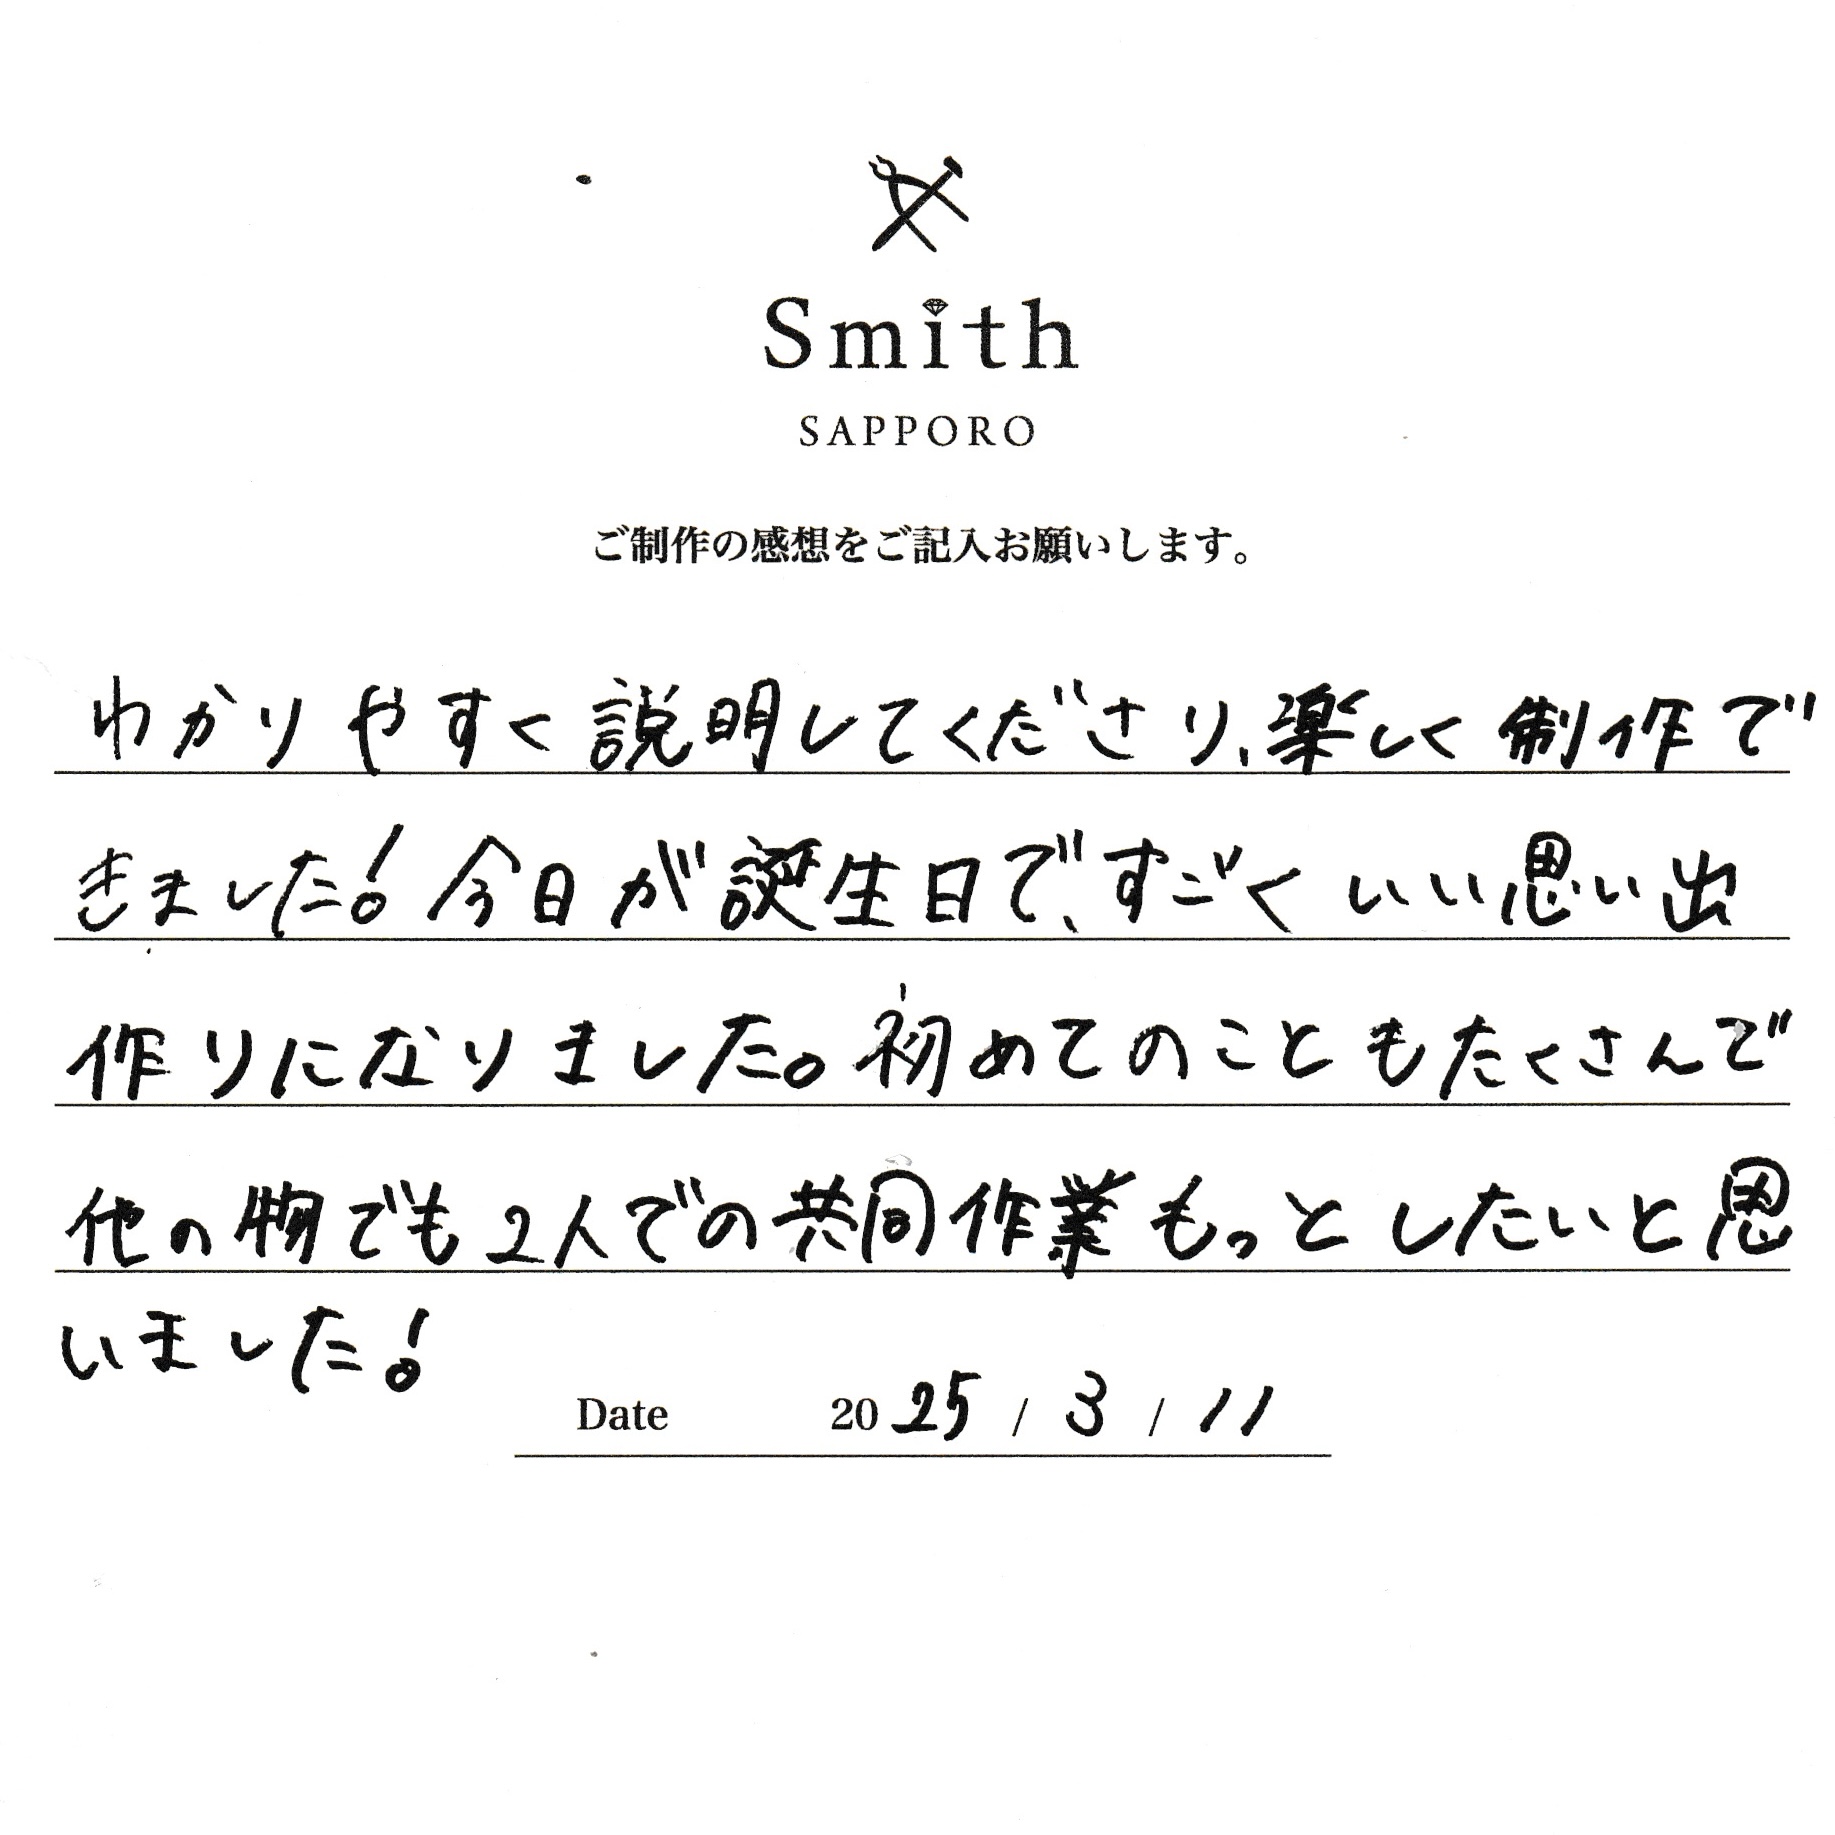 Smith
SAPPORO
ご制作の感想をご記入お願いします。
わかりやすく説明してくださり、楽しく制作で
きました!今日が誕生日で、すごくいい思い出
作りになりました。初めてのこともたくさんで
他の物でも2人での共同作業もっとしたいと思
いました!
Date 2025 / 3 / 11